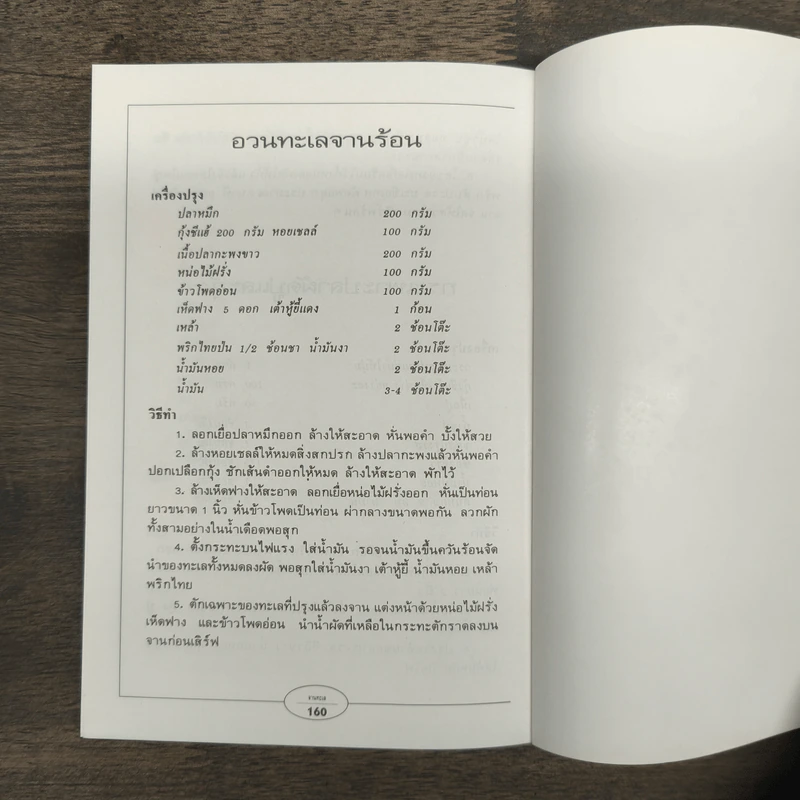 อวนทะเลจานร้อน
เครื่องปรุง
ปลาหมึก 200 กรัม
กุ้งชีแฮ้ 200 กรัม หอยเชลล์ 100 กรัม
เนื้อปลากะพงขาว 200 กรัม
หน่อไม้ฝรั่ง 100 กรัม
ข้าวโพดอ่อน 100 กรัม
เห็ดฟาง 5 ดอก เต้าหู้ยี้แดง 1 ก้อน
เหล้า 2 ช้อนโต๊ะ
พริกไทยป่น 1/2 ช้อนชา น้ำมันงา 2 ช้อนโต๊ะ
น้ำมันหอย 2 ช้อนโต๊ะ
น้ำมัน 3-4 ช้อนโต๊ะ
วิธีทำ
1. ลอกเยื่อปลาหมึกออก ล้างให้สะอาด หั่นพอคำ บั้งให้สวย
2. ล้างหอยเชลล์ให้หมดสิ่งสกปรก ล้างปลากะพงแล้วหั่นพอคำ
ปอกเปลือกกุ้ง ชักเส้นดำออกให้หมด ล้างให้สะอาด พักไว้
3. ล้างเห็ดฟางให้สะอาด ลอกเยื่อหน่อไม้ฝรั่งออก หั่นเป็นท่อน
ยาวขนาด 1 นิ้ว หั่นข้าวโพดเป็นท่อน ผ่ากลางขนาดพอกัน ลวกผัก
ทั้งสามอย่างในน้ำเดือดพอสุก
4. ตั้งกระทะบนไฟแรง ใส่น้ำมัน รอจนน้ำมันขึ้นควันร้อนจัด
นำของทะเลทั้งหมดลงผัด พอสุกใส่น้ำมันงา เต้าหู้ยี้ น้ำมันหอย เหล้า
พริกไทย
5. ตักเฉพาะของทะเลที่ปรุงแล้วลงจาน แต่งหน้าด้วยหน่อไม้ฝรั่ง
เห็ดฟาง และข้าวโพดอ่อน นำน้ำผัดที่เหลือในกระทะตักราดลงบน
จานก่อนเสิร์ฟ
160